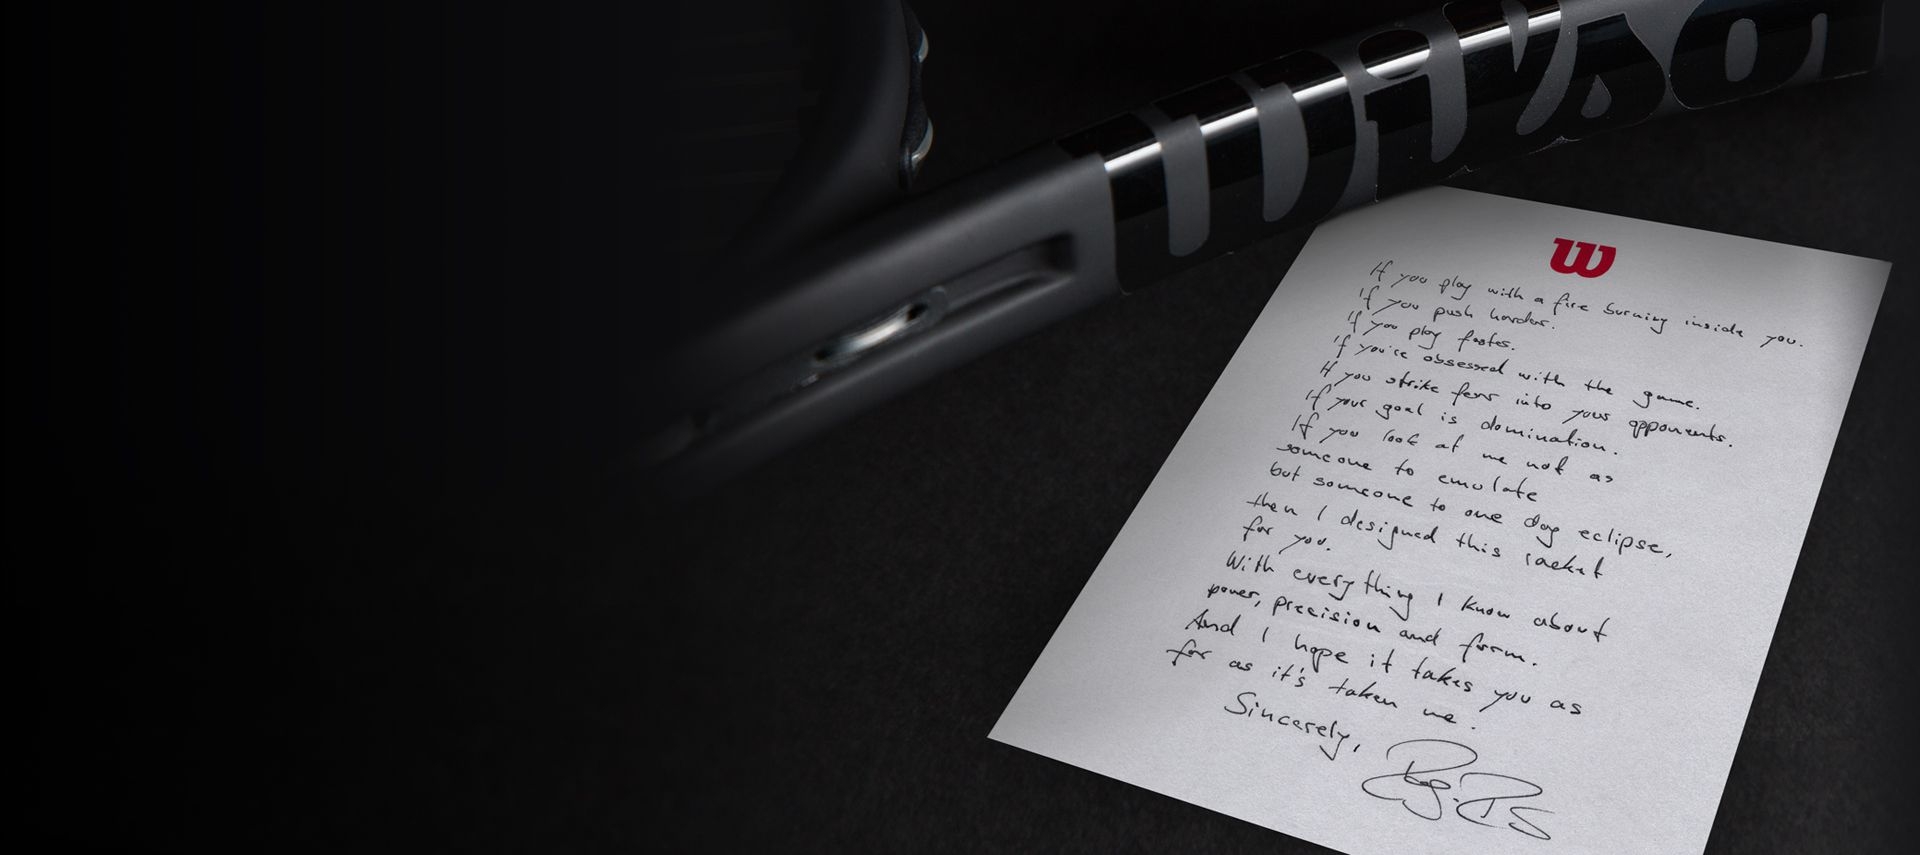 Wilso
W
If you play with a fire burning inside you.
If you push harder.
If you play faster.
If you're obsessed with the game.
If you strike fear into your opponents.
If your goal is domination.
If you look at me not as
someone to emulate
but someone to one day eclipse,
then I designed this racket
for you.
With everything I know about
power, precision and form.
And I hope it takes you as
far as it's taken me.
Sincerely,